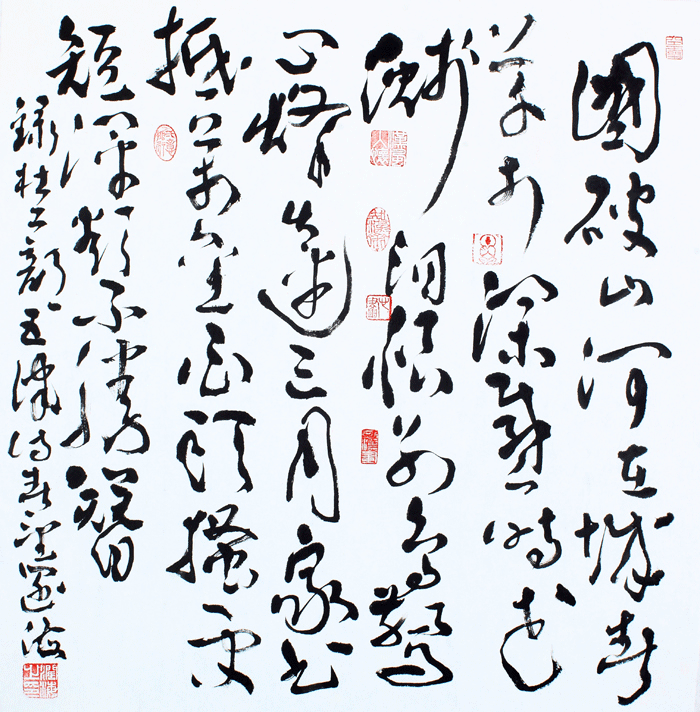 國破山河在城春
草木深感時花
濺泪恨別鳥驚
心烽火連三月家書
抵萬金白頭搔更
短渾欲不勝簪
錄杜工部五律詩春望海